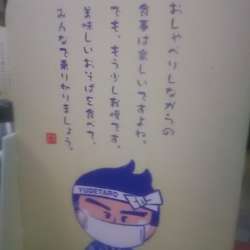 おしゃべりしながらの
食事は楽しいですよね。
でも、もう少し我慢です。
美味しいおそばを食べて、
みんなで乗りきりましょう。
YUDETARO